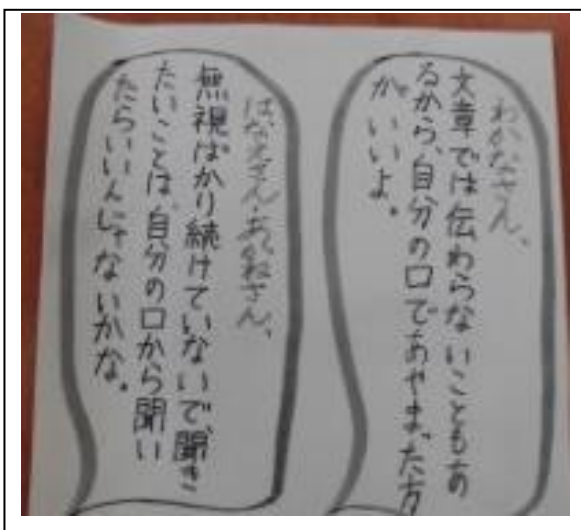 わかなさん、
文章では伝わらないこともあ
るから、自分の口であやまった方
がいいよ。
はなえさん・あかねさん、
無視ばかり続けていないで、聞き
たいことは、自分の口から聞い
たらいいんじゃないかな。